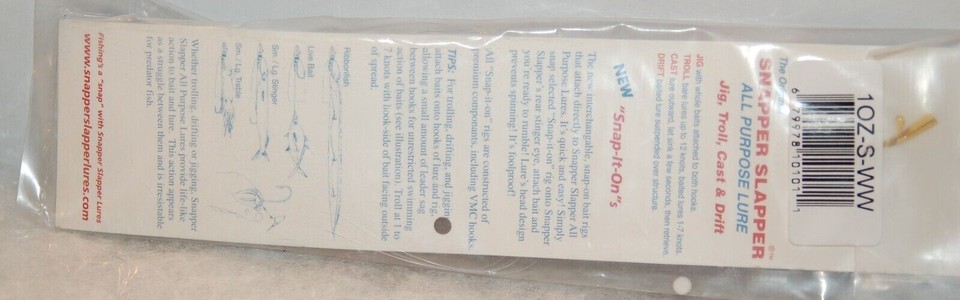 1OZ-S-WW
6 79978 10101 1
The O
SNAPPER SLAPPER
®™
ALL PURPOSE LURE
Jig, Troll, Cast & Drift
JIG with whole baits attached to both hooks.
TROLL bare lures up to 12 knots, baited lures 1-7 knots.
CAST lure outward, let sink a few seconds, then retrieve.
DRIFT baited lure suspended over structure.
NEW "Snap-It-On"s
The new interchangable, snap-on bait rigs
that attach directly to Snapper Slapper All
Purpose Lures. It's quick and easy! Simply
snap selected "Snap-it-on" rig onto Snapper
Slapper's rear stinger eye, attach bait and
you're ready to rumble! Lure's head design
prevents spinning! It's foolproof!
All "Snap-it-on" rigs are constructed of
premium components, including VMC hooks.
TIPS: For trolling, drifting, and jigging
attach baits onto hooks of lure and rig,
allowing a small amount of leader sag
between hooks for unrestricted swimming
action of baits (see illustration). Troll at 1 to
7 knots with hook-side of bait facing outside
of spread.
Ribbonfish
Live Bait
Sm / Lg. Stinger
Sm. / Lg. Treble
Whether trolling, drifting or jigging, Snapper
Slapper All Purpose Lures provide life-like
action to bait and lure. This action appears
as a struggle between them and is irresistable
for predator fish.
Fishing's a "snap" with Snapper Slapper Lures
www.snapperslapperlures.com